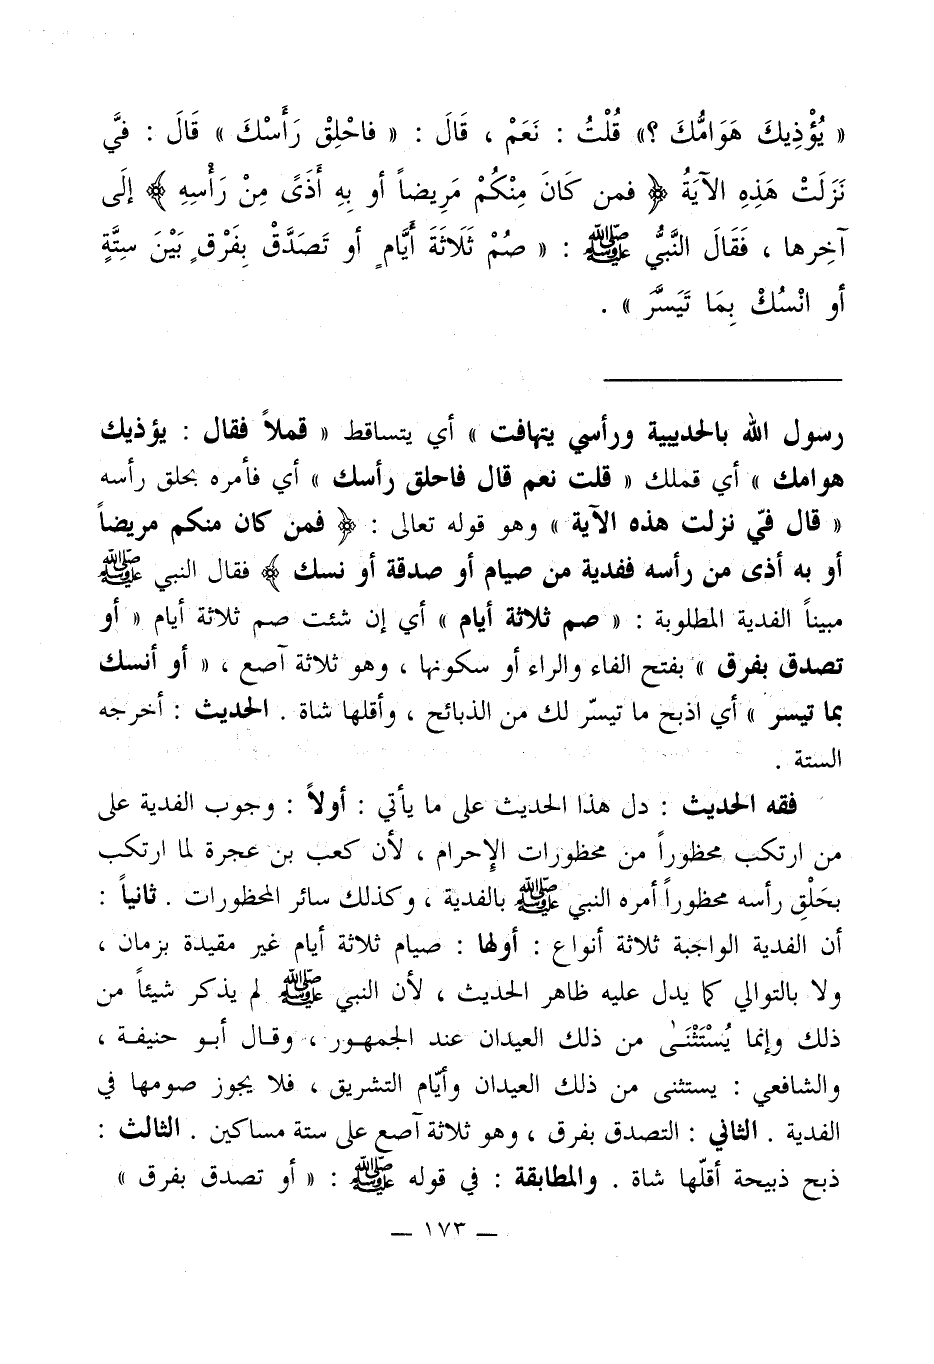 « يُؤْذِيكَ هَوَامُّكَ ؟» قُلْتُ : نَعَمْ ، قَالَ : « فاحْلِقْ رَأَسْكَ » قَالَ : فيَّ
نَزَلَتْ هَذِهِ الآيَةُ ﴿ فمن كَانَ مِنْكُمْ مَرِيضاً أو بِهِ أَذَىً مِنْ رَأْسِهِ ﴾ إلَى
آخِرها ، فَقَالَ النَّبيُّ ﷺ : « صُمْ ثَلَاثَةَ أيَّامٍ أو تَصَدَّقْ بِفَرْقٍ بَيْنَ سِتَّةٍ
أو انْسُكْ بِمَا تَيَسَّرَ » .
رسول الله بالحديبية ورأسي يتهافت » أي يتساقط « قملاً فقال : يؤذيك
هوامك » أي قملك « قلت نعم قال فاحلق رأسك » أي فأمره بحلق رأسه
« قال فيّ نزلت هذه الآية » وهو قوله تعالى : ﴿ فمن كان منكم مريضاً
أو به أذى من رأسه ففدية من صيام أو صدقة أو نسك ﴾ فقال النبي ﷺ
مبيناً الفدية المطلوبة : « صم ثلاثة أيام » أي إن شئت صم ثلاثة أيام « أو
تصدق بفرق » بفتح الفاء والراء أو سكونها ، وهو ثلاثة آصع ، « أو أنسك
بما تيسر » أي اذبح ما تيسّر لك من الذبائح ، وأقلها شاة . الحديث : أخرجه
الستة .
فقه الحديث : دل هذا الحديث على ما يأتي : أولاً : وجوب الفدية على
من ارتكب محظوراً من محظورات الإحرام ، لأن كعب بن عجرة لما ارتكب
بحَلْقِ رأسه محظوراً أمره النبي ﷺ بالفدية ، وكذلك سائر المحظورات . ثانياً :
أن الفدية الواجبة ثلاثة أنواع : أولها : صيام ثلاثة أيام غير مقيدة بزمان ،
ولا بالتوالي كما يدل عليه ظاهر الحديث ، لأن النبي ﷺ لم يذكر شيئاً من
ذلك وإنما يُسْتَثْنَىٰ من ذلك العيدان عند الجمهور ، وقال أبو حنيفة ،
والشافعي : يستثنى من ذلك العيدان وأيّام التشريق ، فلا يجوز صومها في
الفدية . الثاني : التصدق بفرق ، وهو ثلاثة آصع على ستة مساكين . الثالث :
ذبح ذبيحة أقلّها شاة . والمطابقة : في قوله ﷺ : « أو تصدق بفرق »
— ١٧٣ —